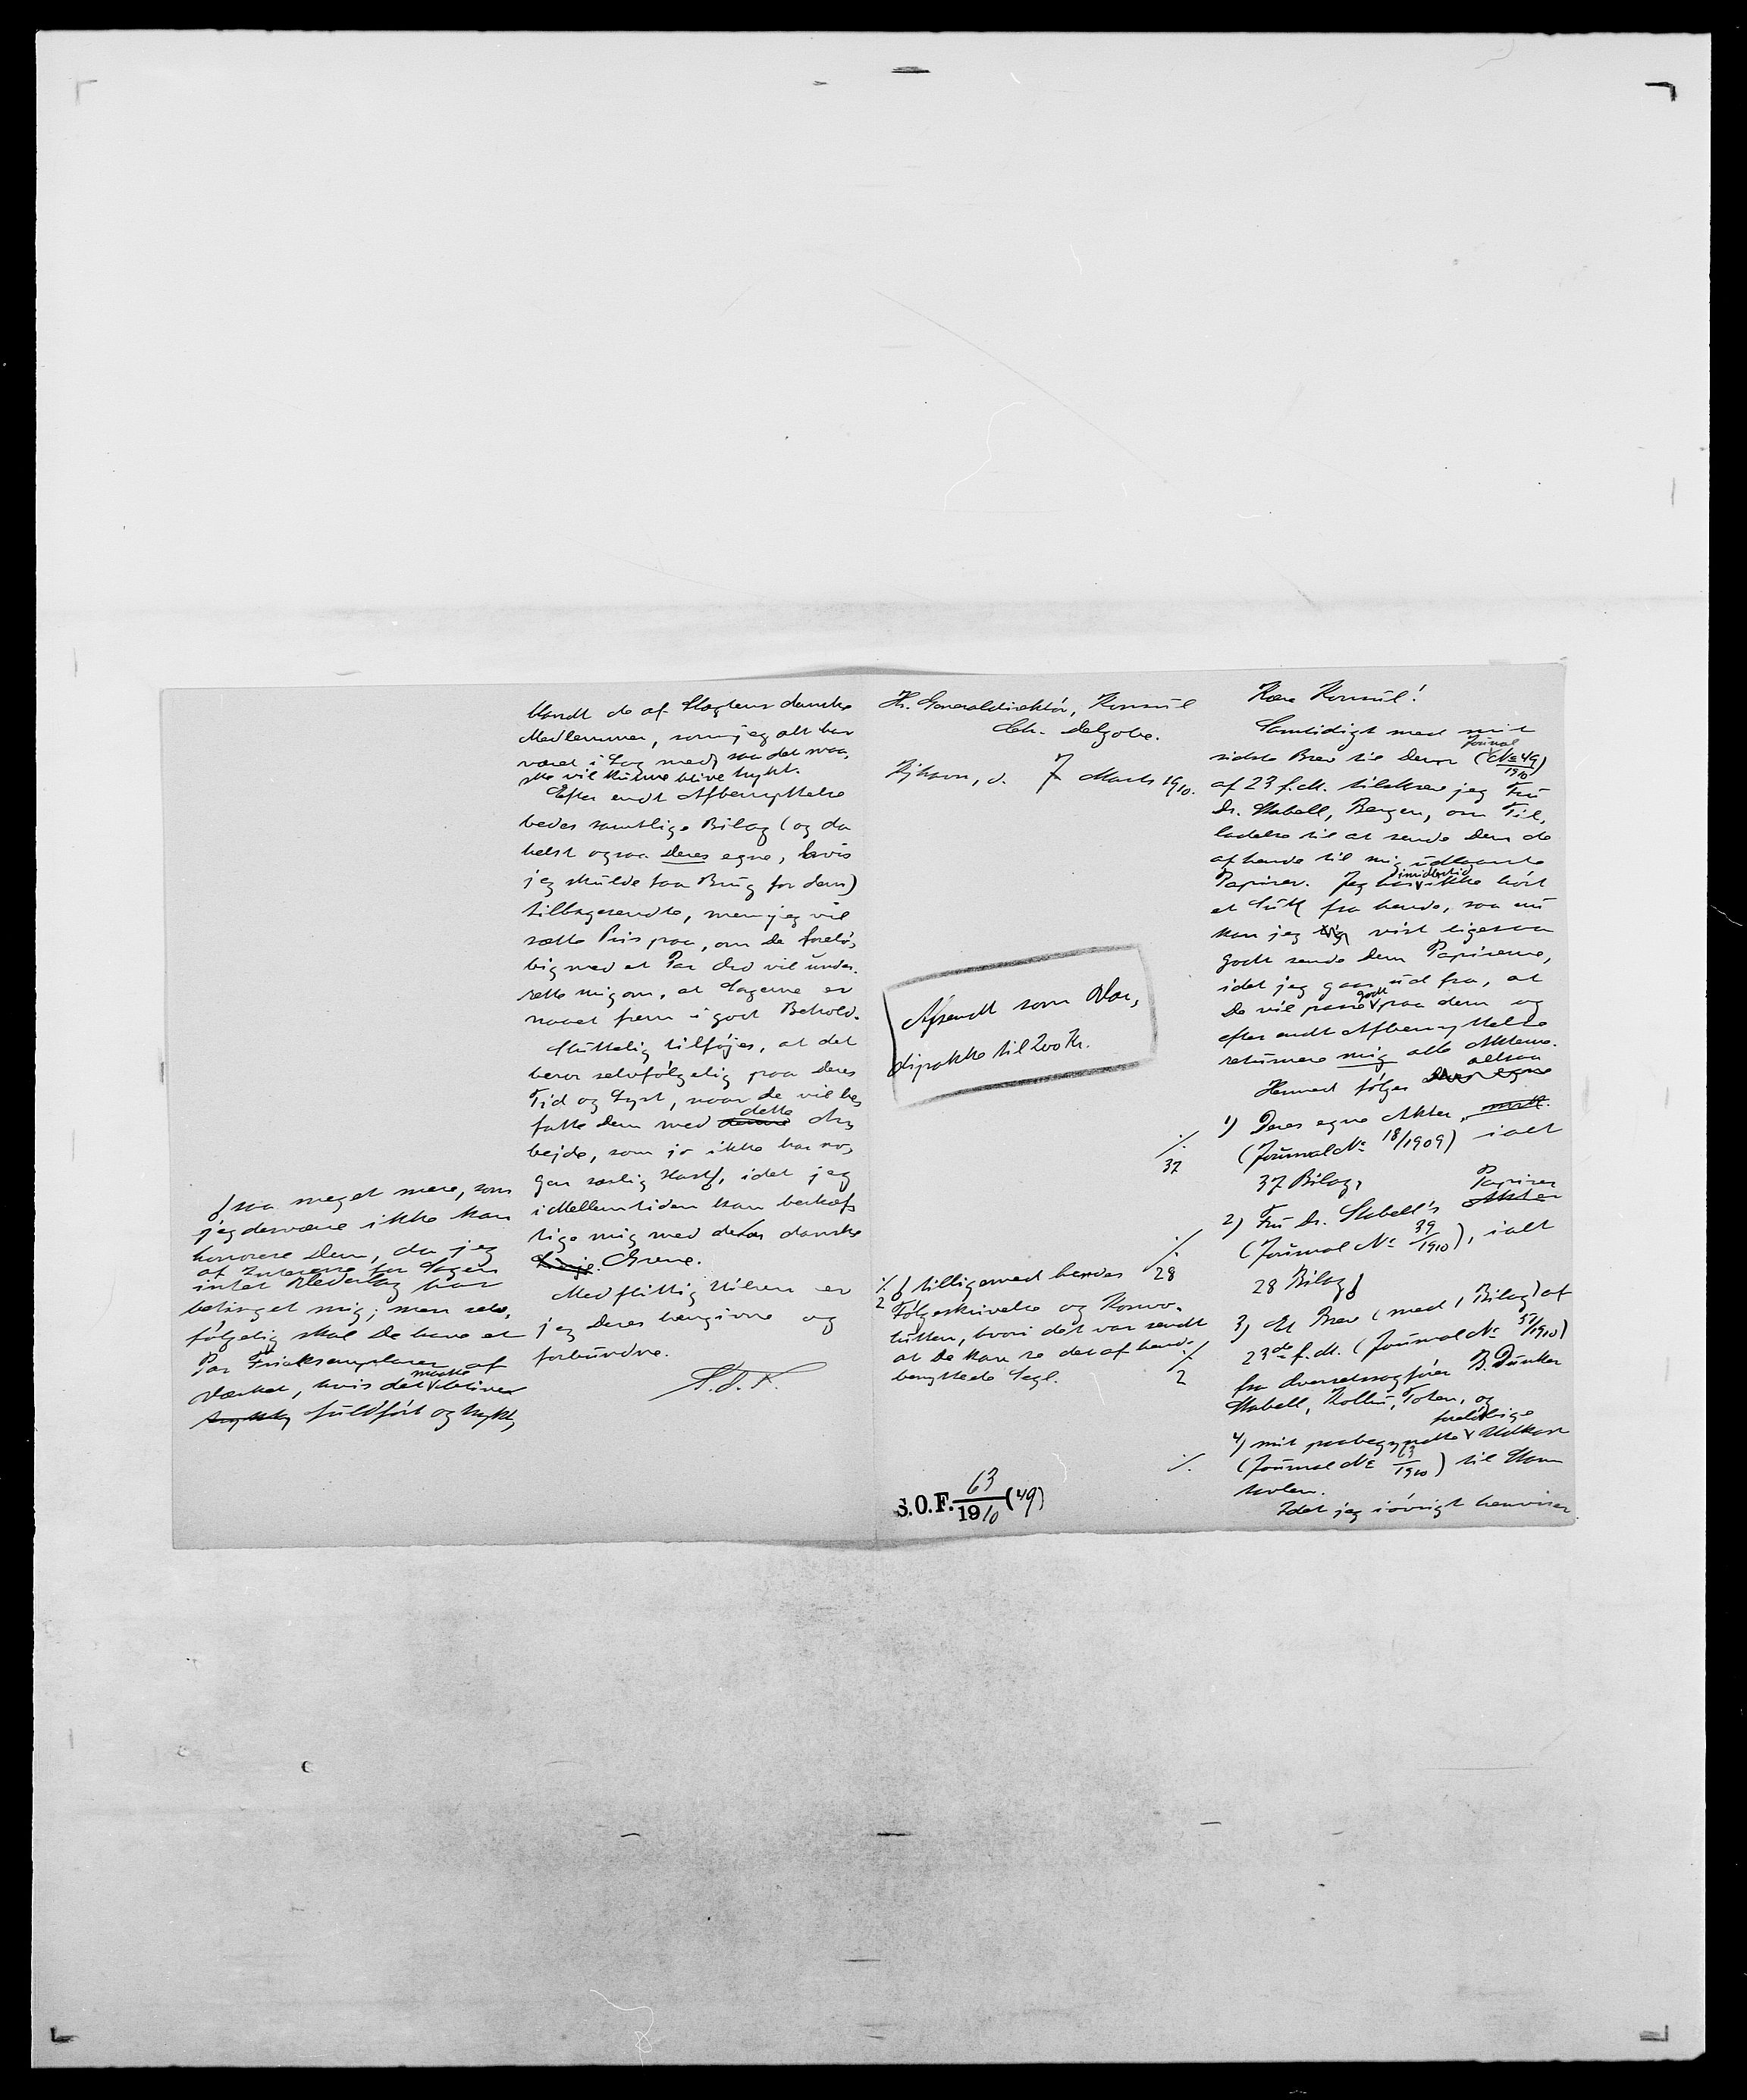 Hr. Generaldirektör, Konsul
Ch. Delgobe.
7 Marts 1910.
Afsendt som Vær,
dipakke til 200 Kr.
% ∮ tilligemed hendes
2 Følgeskrivelse og Konvo-
lutten, hvori det var sendt
at De kan se det af hende
benyttede Segl.
S.O.F. 63/1910 (49)
Kære Konsul!
Samtidigt med mit
sidste Brev til Dem (Journal No 49/1910)
af 23 f.M. tilskrev jeg Fru
Dr. Stabell, Bergen, om Til,
ladelse til at sende Dem de
af hende til mig udlaante
Papirer. Jeg har imidlertid ikke hört
et Suk fra hende, saa nu
kan jeg vist ligesaa
godt sende Dem Papirerne,
idet jeg gaar ud fra, at
De vil passe godt paa dem og
efter endt Afbenyttelse
returnere mig alle Akterne.
Hermed følger altsaa
1) Deres egne Akter,
(Journal No 18/1909) ialt
% 37
37 Bilag,
2) Fru Dr. Stabell's Papirer
(Journal No 39/1910), ialt
% 28
28 Bilag ∮
3) Et Brev (med 1 Bilag) af
23de f.M. (Journal No 57/1910)
fra Overretssagfører B. Dunker
% 2
Stabell, Kolbu, Toten, og
4) mit paabegyndte foreløbige Udkast
% (Journal No 63/1910) til Stam
tavlen.
Idet jeg iövrigt henviser
blandt de af Slægtens danske
Medlemmer, som jeg alt har
været i Lag med, saa det maa,
ske vil kunne blive trykt.
Efter endt Afbenyttelse
bedes samtlige Bilag (og da
helst ogsaa Deres egne, hvis
jeg skulde faa Brug for dem)
tilbagesendte, men jeg vil
sætte Pris paa, om De forelö,
big med et Par Ord vil under-
rette mig om, at Sagerne er
naaet frem i god Behold.
Sluttelig tilføjes, at det
beror selvfølgelig paa Deres
Tid og Lyst, naar De vil be,
fatte Dem med dette Ar,
bejde, som jo ikke har no,
gen særlig Hast ∮, idet jeg
i Mellemtiden kan beskæf,
tige mig med de danske
Linje. Grene.
Med flittig Hilsen er
jeg Deres hengivne og
forbundne.
S.O.F.
∮ saa meget mere, som
jeg desværre ikke kan
honorere Dem, da jeg
af Interesse for Sagen
intet Vederlag har
betinget mig; men selv,
følgelig skal De have et
Par Frieksemplarer af
Værket, hvis det maatte blive
fuldført og trykt,